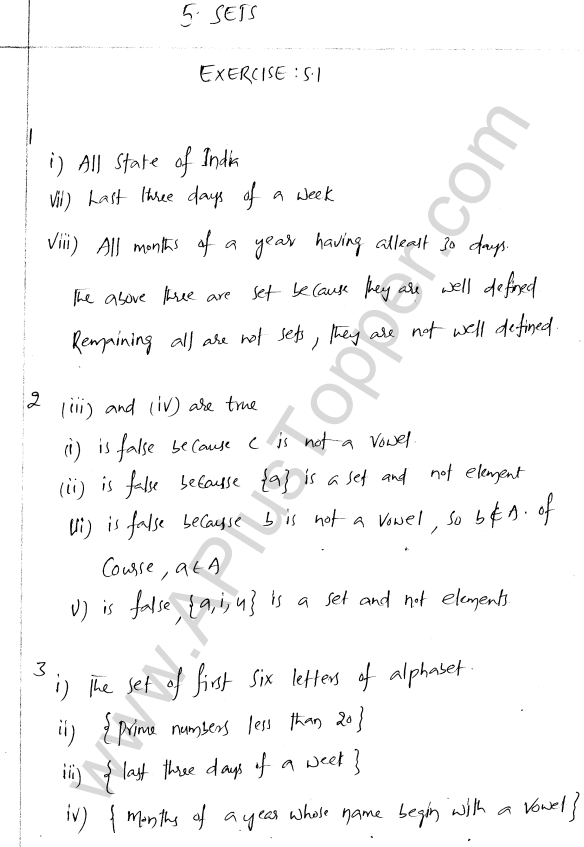 5. SETS
EXERCISE : 5.1
1
i) All State of India
vii) Last three days of a week
viii) All months of a year having atleast 30 days.
The above three are set because they are well defined
Remaining all are not sets, they are not well defined.
2 (iii) and (iv) are true
(i) is false because c is not a vowel.
(ii) is false becausse {a} is a set and not element
(vi) is false becausse b is not a vowel, so b ∉ A. of
Course, a ∈ A
v) is false, {a, i, u} is a set and not elements
3 i) The set of first six letters of alphabet.
ii) {prime numbers less than 20}
iii) {last three days of a week}
iv) {months of a year whose name begin with a vowel}
www.APlusTopper.com